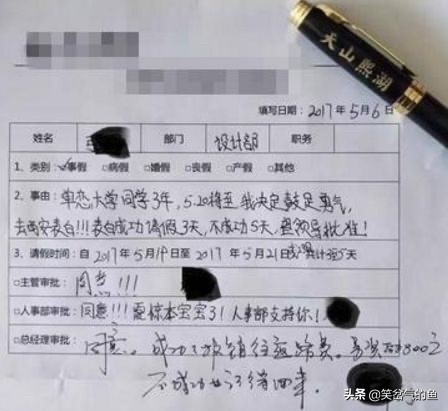 天山熙湖
填写日期：2017年5月6日
姓名 部门 设计部 职务
1. 类别：☑事假 □病假 □婚假 □丧假 □产假 □其他
2. 事由：单恋大学同学3年，5.20将至 我决定鼓足勇气，
去西安表白!!!表白成功请假3天，不成功5天，望领导批准！
3. 请假时间：自2017年5月19日至2017年5月21日 共计 5天
□主管审批：同意!!!
□人事部审批：同意!!! 要惊本宝宝了！人事部支持你！
□总经理审批：同意。成功了报销往返路费。
不成功
头条 @笑岔气的鱼